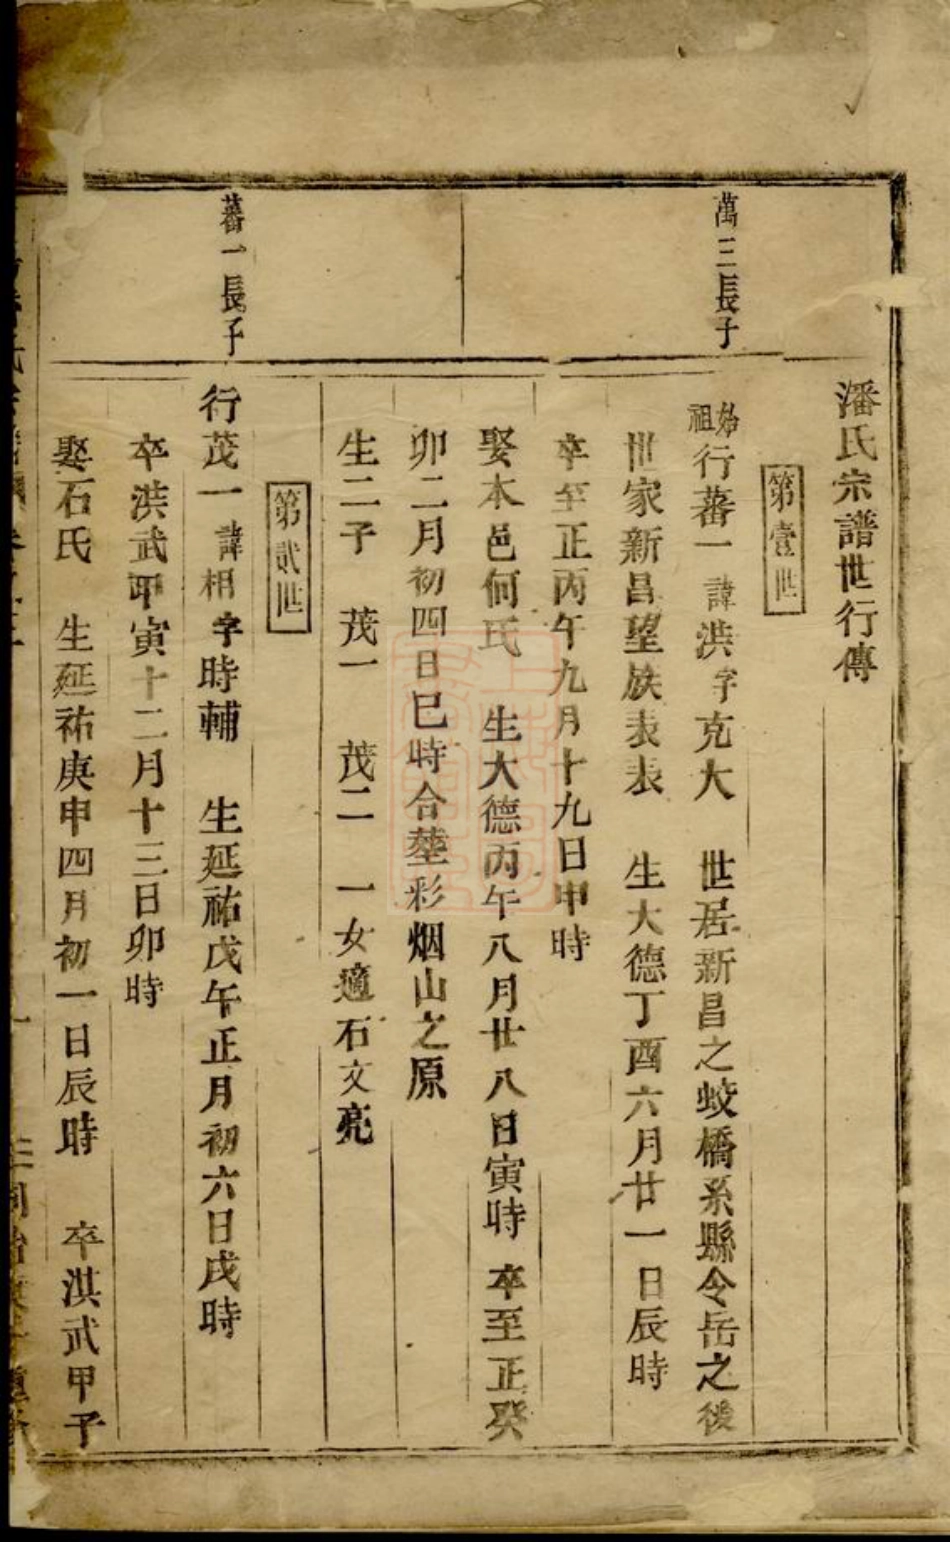 潘氏宗譜世行傳
第壹世
萬三長子
始祖行蕃一諱洪字克大 世居新昌之蛟橋系縣令岳之後
世家新昌望族表表 生大德丁酉六月廿一日辰時
卒至正丙午九月十九日申時
娶本邑何氏 生大德丙午八月廿八日寅時 卒至正癸
卯二月初四日巳時合塟彩烟山之原
生二子 茂一 茂二 一女適石文亮
第貳世
蕃一長子
行茂一諱相字時輔 生延祐戊午正月初六日戌時
卒洪武甲寅十二月十三日卯時
娶石氏 生延祐庚申四月初一日辰時 卒洪武甲子